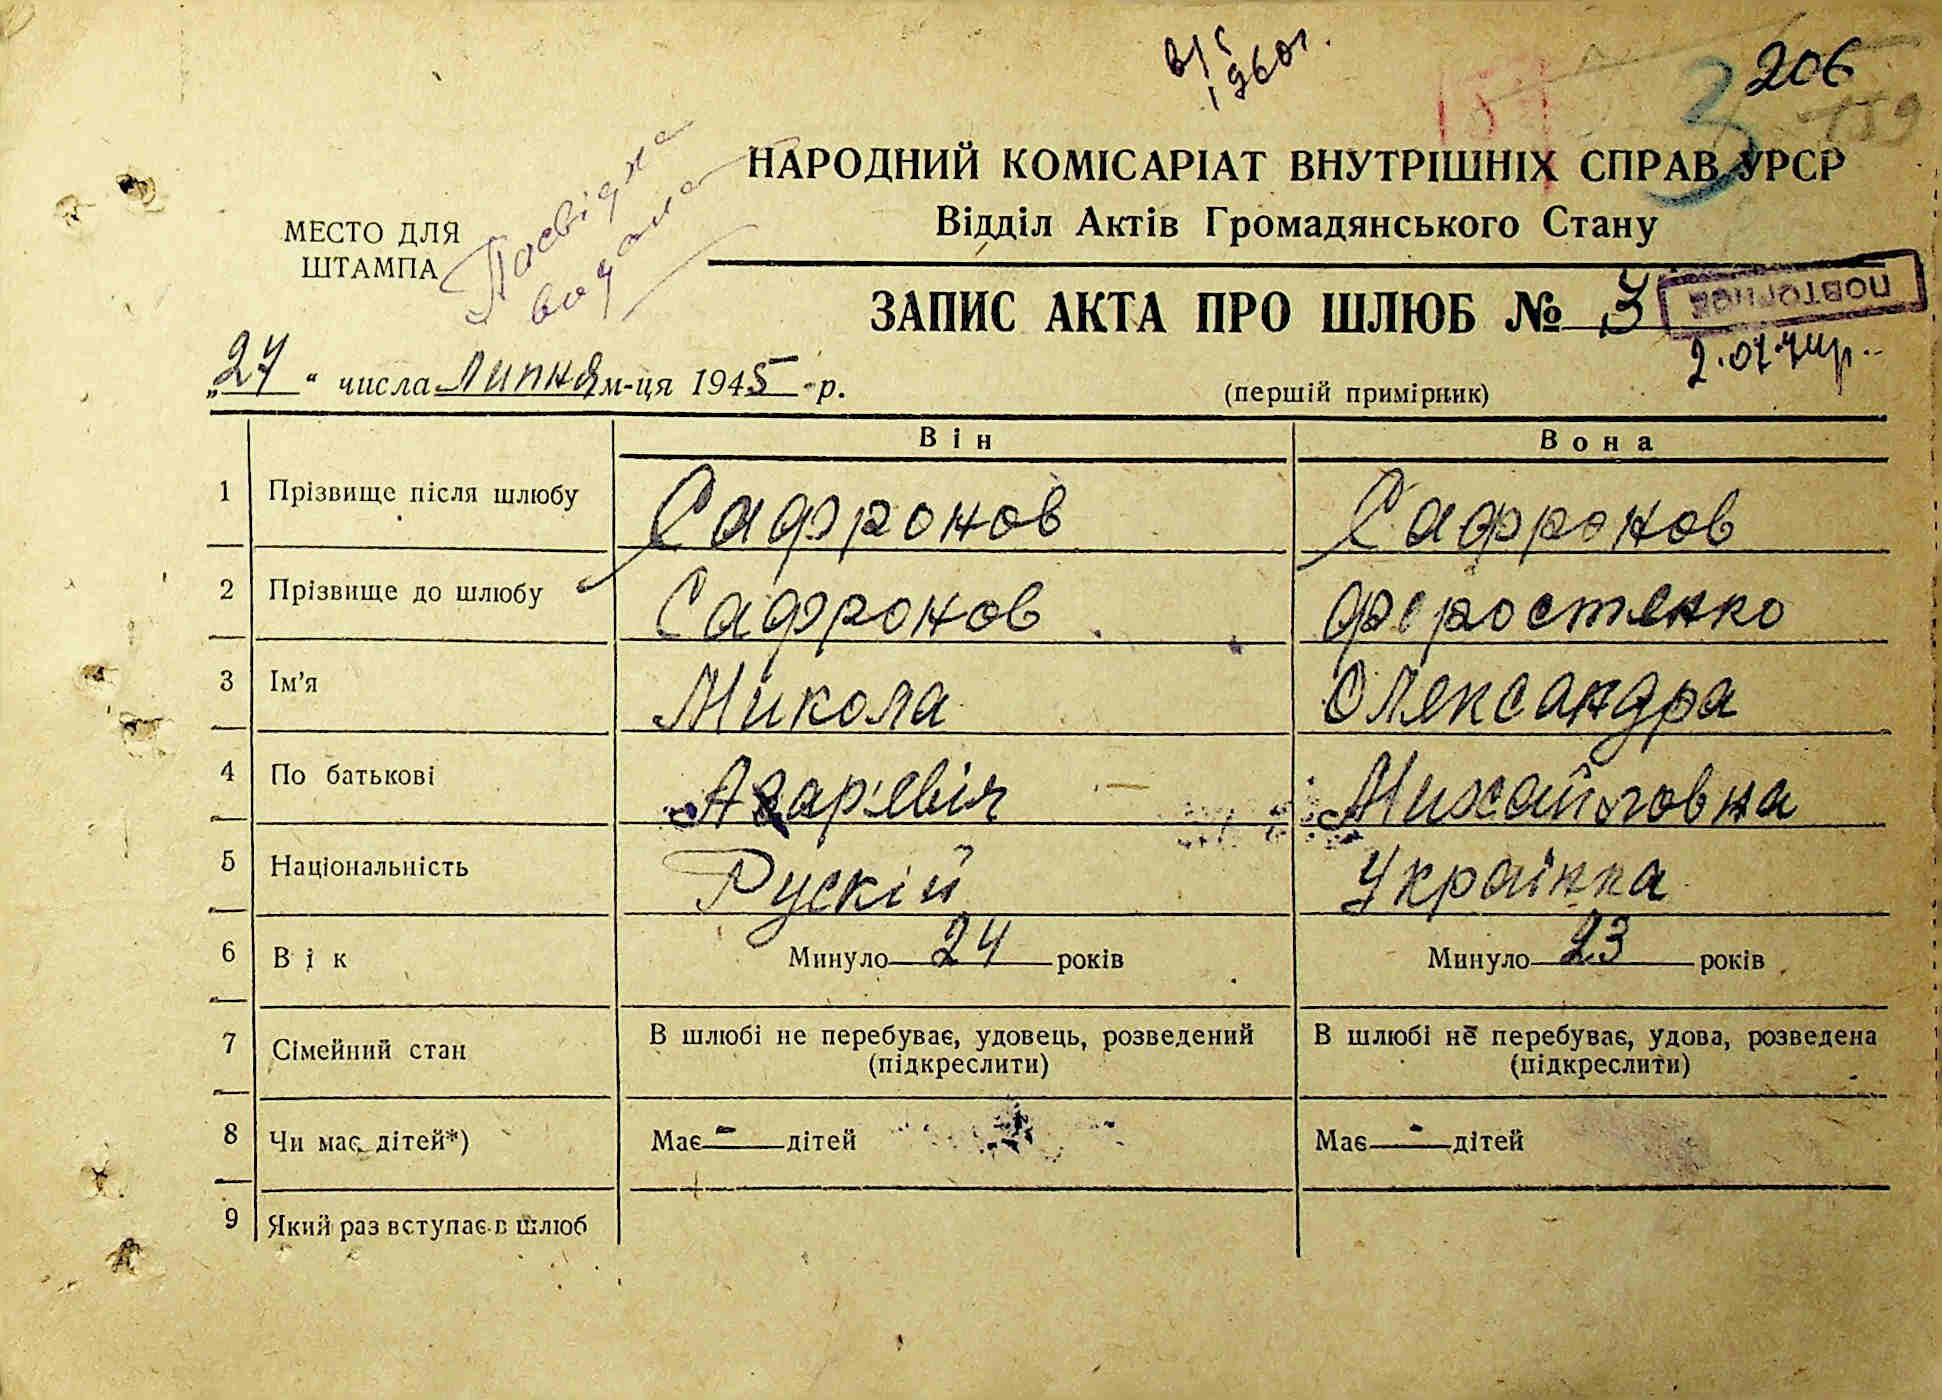 206
3
159
НАРОДНИЙ КОМІСАРІАТ ВНУТРІШНІХ СПРАВ УРСР
Відділ Актів Громадянського Стану
МЕСТО ДЛЯ
ШТАМПА
Посвідка
видана
ЗАПИС АКТА ПРО ШЛЮБ № 3
ПОВТОРНОЕ
„27" числа липня м-ця 1945 р.
(перший примірник)
Він Вона
1 Прізвище після шлюбу Сафронов Сафронов
2 Прізвище до шлюбу Сафронов Феростенко
3 Ім'я Микола Олександра
4 По батькові Азар'євіч Михайловна
5 Національність Рускій Українка
6 Вік Минуло 24 років Минуло 23 років
7 Сімейний стан В шлюбі не перебуває, удовець, розведений (підкреслити) В шлюбі не перебуває, удова, розведена (підкреслити)
8 Чи має дітей*) Має - дітей Має - дітей
9 Який раз вступає в шлюб